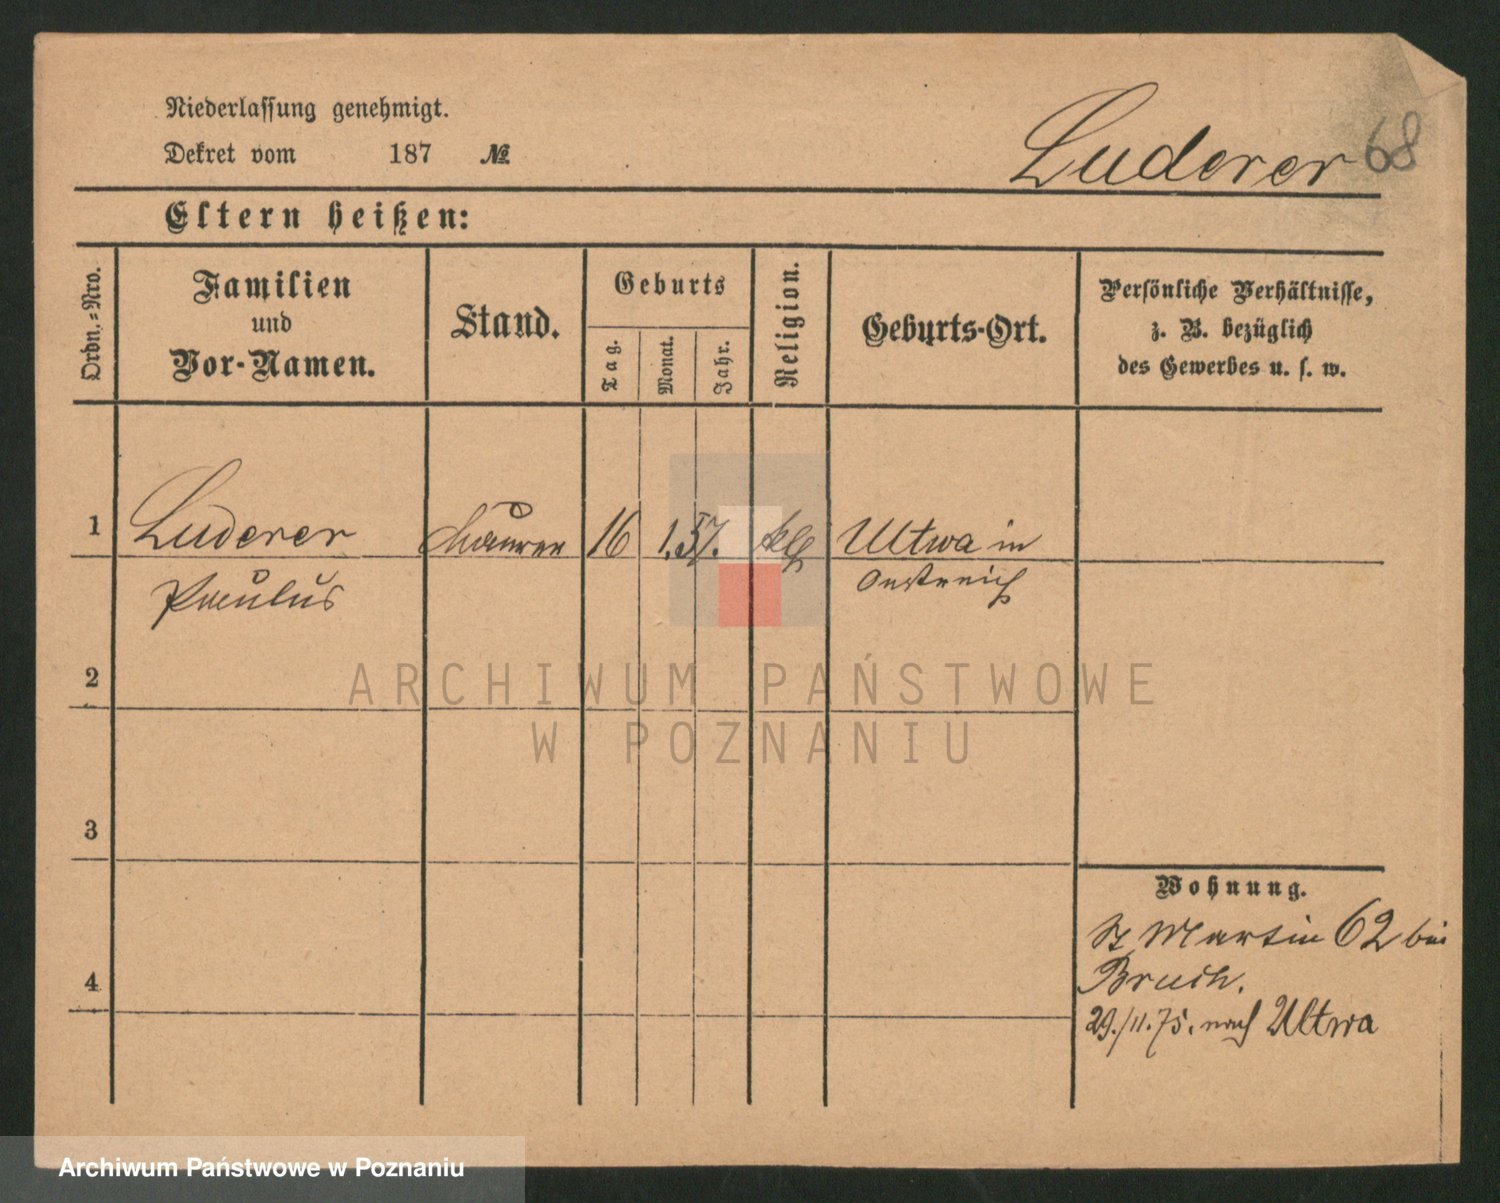 Niederlassung genehmigt.
Dekret vom 187 №
Luderer 68
Eltern heißen:
Ordn.=Nro.
Familien
und
Vor-Namen.
Stand.
Geburts
Tag.
Monat.
Jahr.
Religion.
Geburts-Ort.
Persönliche Verhältnisse,
z. B. bezüglich
des Gewerbes u. s. w.
1 Luderer Maurer 16 1. 57. Altwa in
Paulus Oestreich
2
3
4
Wohnung.
St Martin 62 bei
Bruch.
29./11.75. nach Altwa
ARCHIWUM PAŃSTWOWE
W POZNANIU
Archiwum Państwowe w Poznaniu